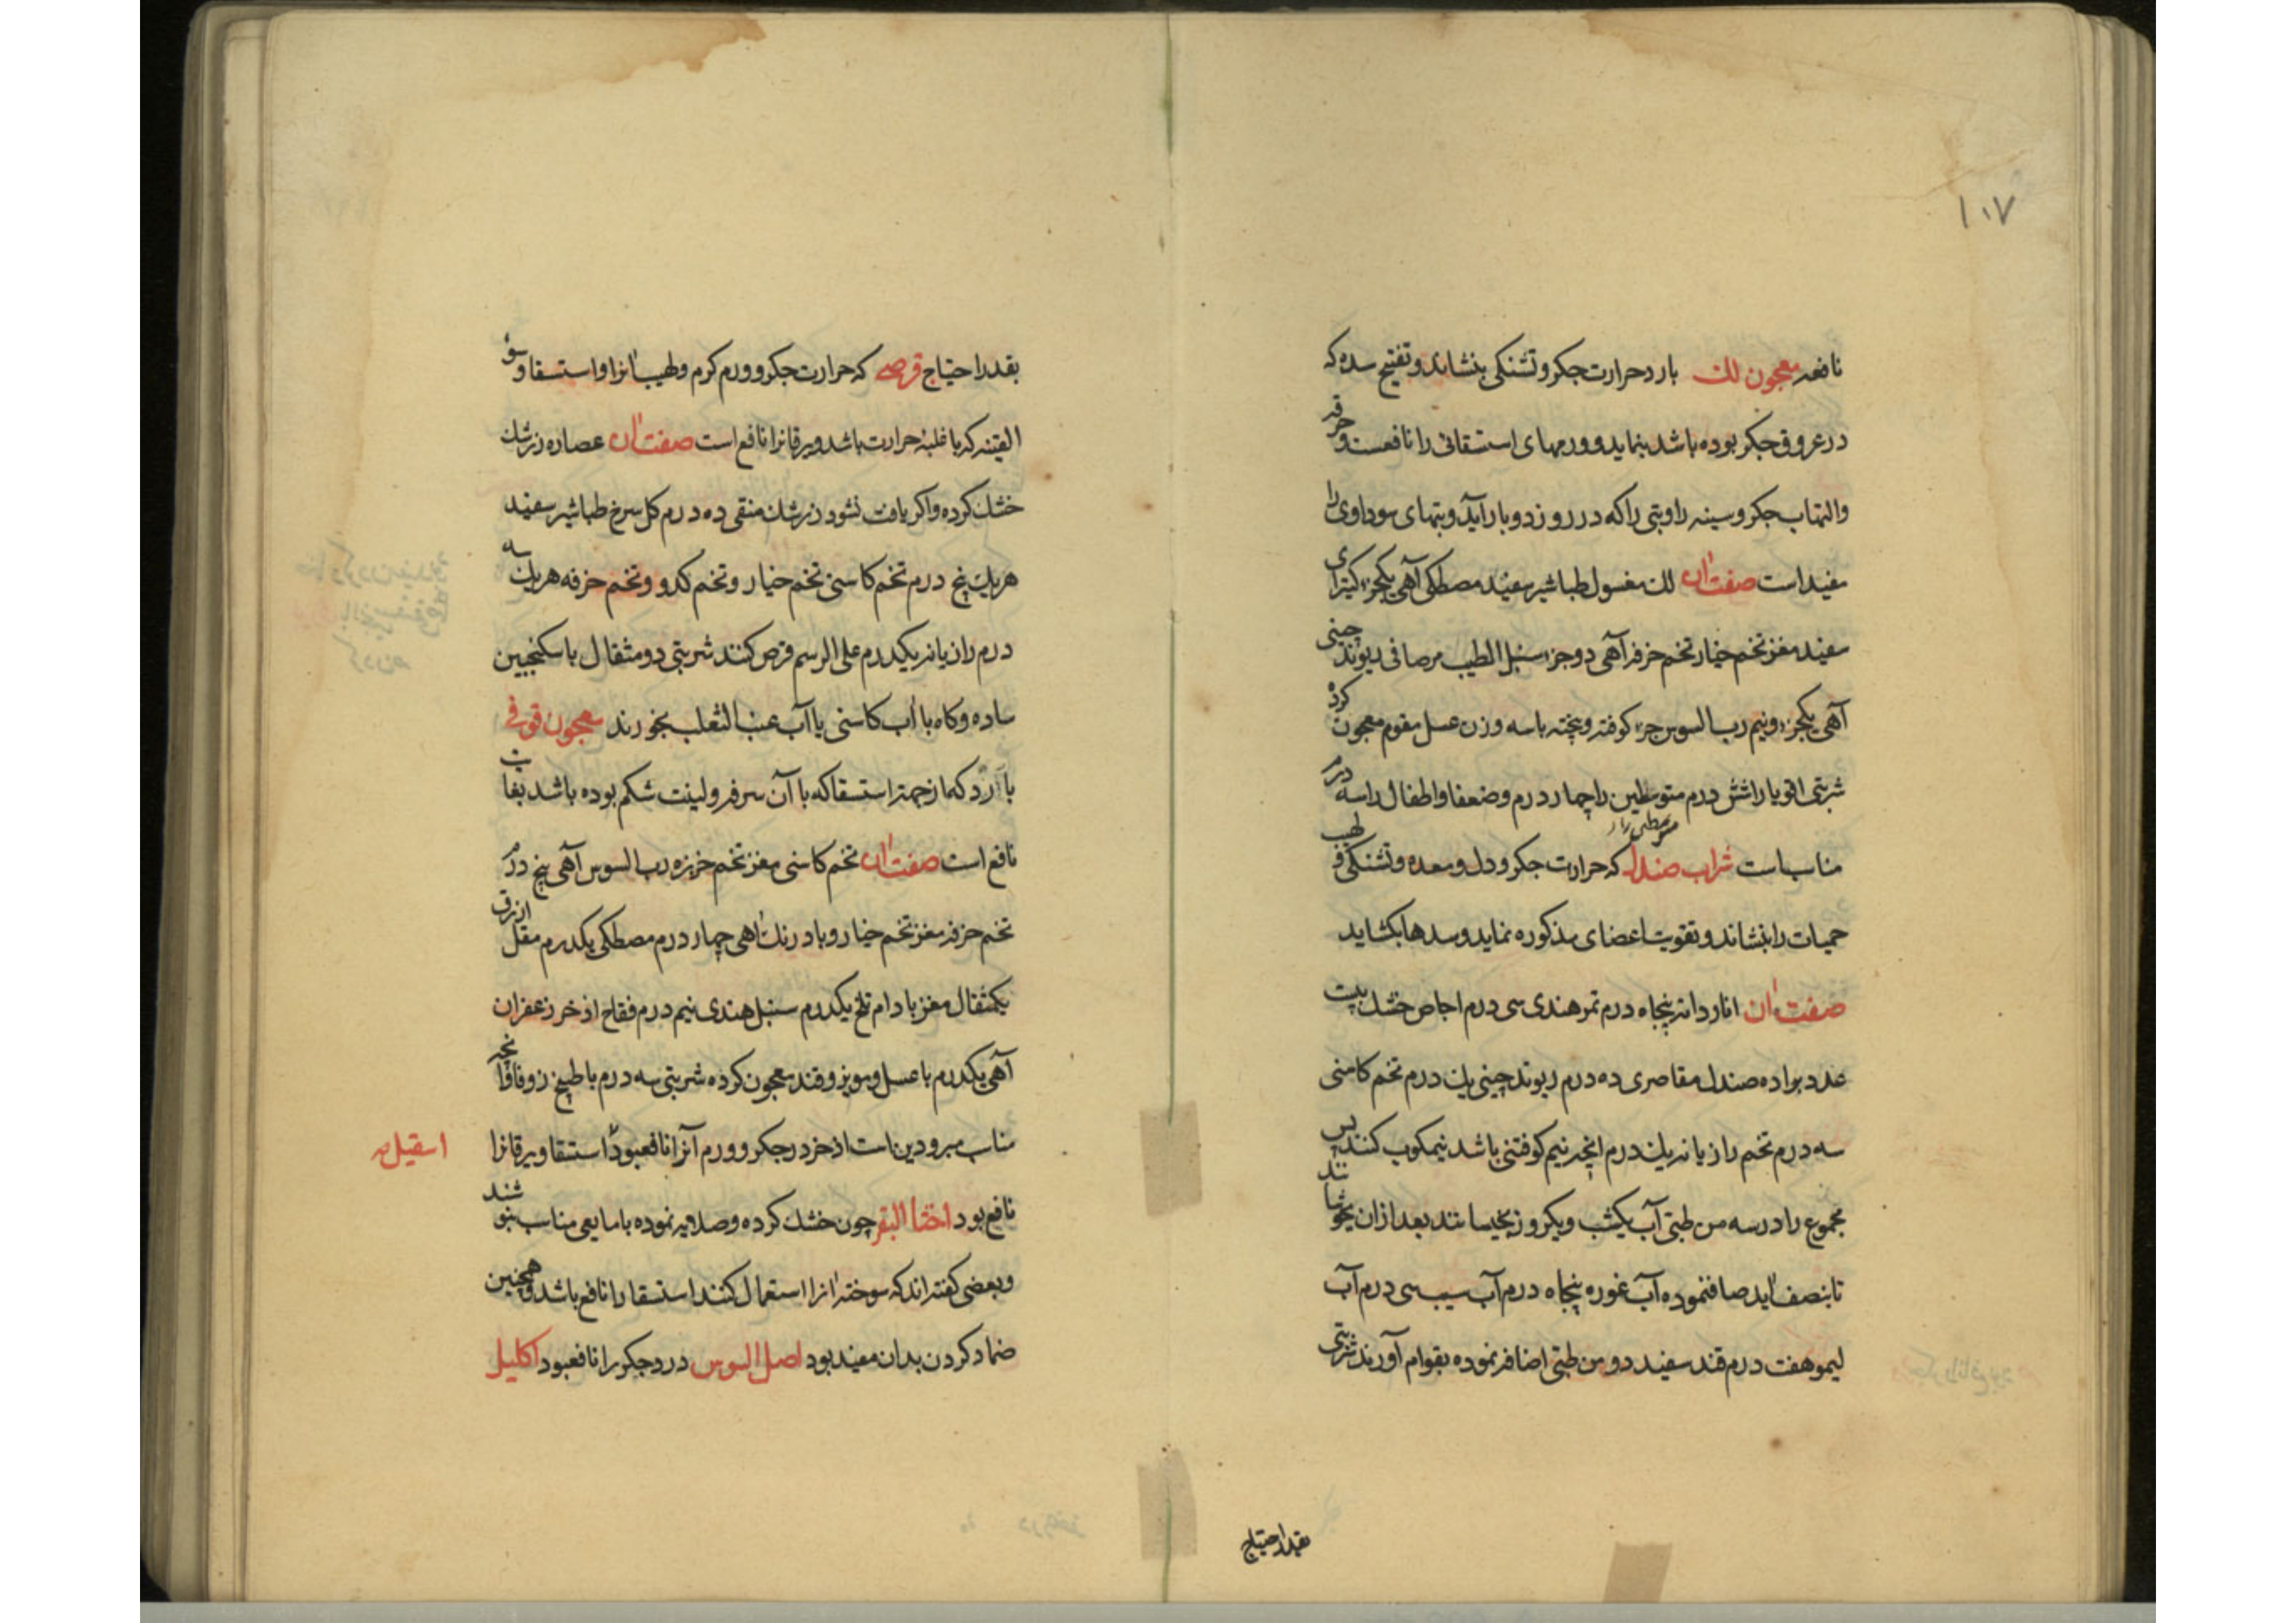 ۱۰۷
نافعه معجون لك بارد حرارت جكر و تشنكی بنشاند و تفتیح سده كه
در عروق جكر بوده باشد بنماید و ورمهای استسقائی را نافعست و حرقه
والتهاب جكر و سینه را و تبی را كه در روز دو بار آید و تبهای سوداوی را
مفید است صفت آن لك مغسول طباشیر سفید مصطكی آهی یكجزء كتیرای
سفید مغز تخم خیار تخم خرفه آهی دو جزء سنبل الطیب مرصافی ریوند چینی
آهی یكجزء و نیم رب السوس جزء كوفته و بیخته باسه وزن عسل مقوم معجون كرده
شربتی اقویا را شش درم متوسطین را چهار درم و ضعفا و اطفال را سه درم
متوسطین را
مناسب است شراب صندل كه حرارت جكر و دل و معده و تشنكی و لهب
حمیات را بنشاند و تقویت اعضای مذكوره نماید و سدها بكشاید
صفت آن انار دانه پنجاه درم تمر هندی سی درم اجاص خشك بیست
عدد بواده صندل مقاصری ده درم ریوند چینی یك درم تخم كاسنی
سه درم تخم رازیانه یك درم انچه نیم كوفتنی باشد نیمكوب كنند پس
مجموع را در سه من طبتی آب یكشب و یكروز بخیسانند بعد ازان بجوشانند
تا بنصف آید صاف نموده آب غوره پنجاه درم آب سیب سی درم آب
لیمو هفت درم قند سفید دو من طبتی اضافه نموده بقوام آورند شربتی
بقدر احتیاج
بقدر احتیاج قرصی كه حرارت جكر و ورم كرم و لهیب آنرا و استسقا و سوء
القنیه كه با غلبهٔ حرارت باشد و یرقانرا نافع است صفت آن عصاره زرشك
خشك كرده و اكر یافت نشود زرشك منقی ده درم كل سرخ طباشیر سفید
هریك پنج درم تخم كاسنی تخم خیار و تخم كدو و تخم خرفه هریك سه
درم رازیانه یكدرم علی الرسم قرص كنند شربتی دو مثقال با سكنجبین
ساده و كاه با آب كاسنی یا آب عنب الثعلب بخورند معجون قوفی
بارد كه از جهة استسقا كه با آن سرفه و لینت شكم بوده باشد بغایت
نافع است صفت آن تخم كاسنی مغز تخم خربزه رب السوس آهی پنج درم
تخم خرفه مغز تخم خیار و بادرنك آهی چهار درم مصطكی یكدرم مقل ازرق
یكمثقال مغز بادام تلخ یكدرم سنبل هندی نیم درم فقاح اذخر زعفران
آهی یكدرم با عسل و مویز و قند معجون كرده شربتی سه درم با طبیخ زوفا و آنچه
مناسب مبرودین است اذخر درد جكر و ورم آنرا نافع بود و استسقا و یرقانرا
اسقیل
نافع بود اخثاء البقر چون خشك كرده و صلایه نموده با مایعی مناسب بنوشند
و بعضی كفته اند كه سوخته آنرا استعمال كنند استسقا را نافع باشد و همچنین
ضماد كردن بدان مفید بود اصل السوس درد جكر را نافع بود اكلیل